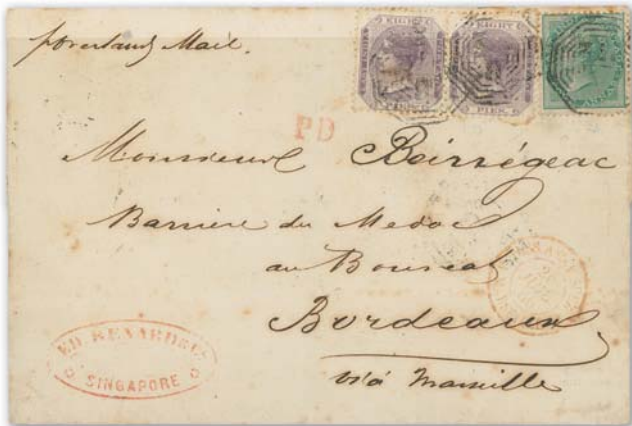 p overland Mail.
EIGHT
PIES
EIGHT
PIES
PD
Monsieur Beirségeac
Barriere du Medoc
au Bouscat
Bordeaux
via Marseille
ED. RENARD & Co
SINGAPORE